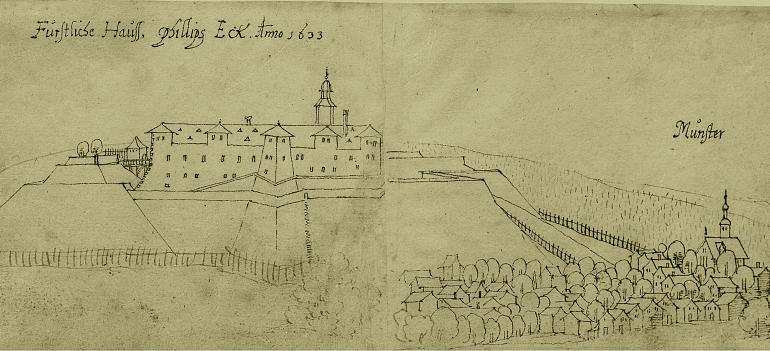 Fürstliche Hauss, Phillips Eck. Anno 1633
Münster